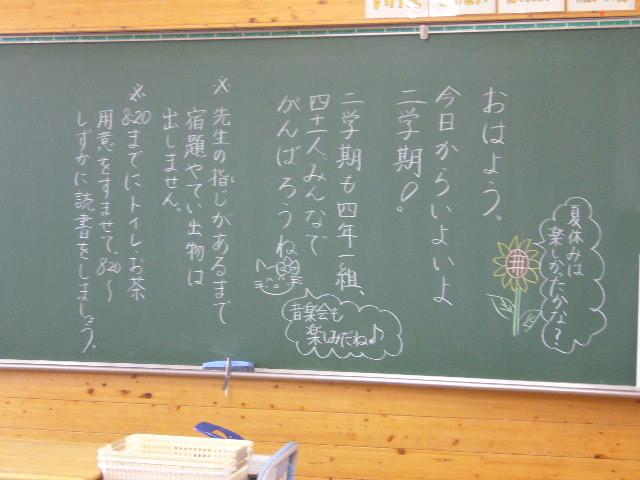 おはよう。
今日からいよいよ
二学期。
二学期も四年一組、
四十一人みんなで
がんばろうね
夏休みは
楽しかたかな？
音楽会も
楽しみだね♪
※先生の指じがあるまで
宿題やてい出物は
出しません。
※8:20までにトイレ・お茶
用意をすませて、8:20〜
しずかに読書をしましょう。